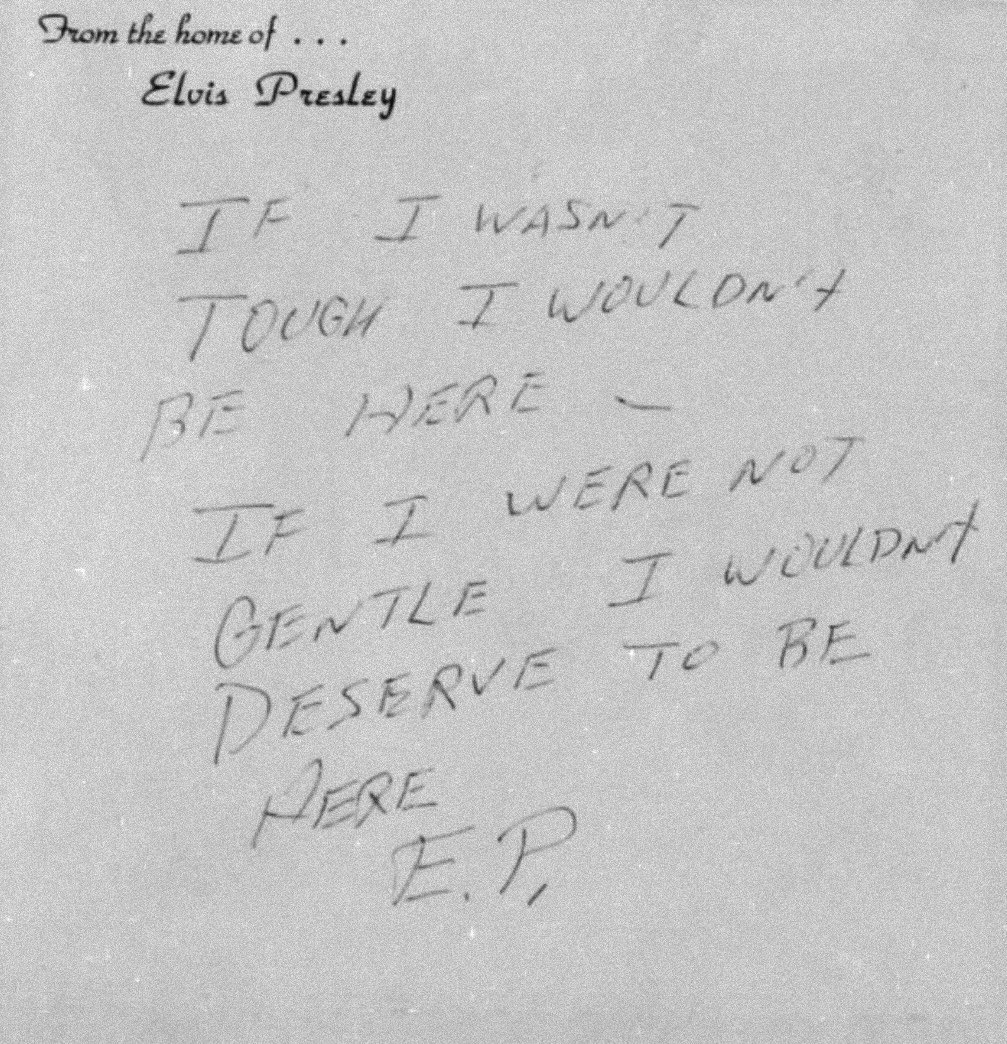 From the home of . . .
Elvis Presley
IF I WASN'T
TOUGH I WOULDN't
BE HERE —
IF I WERE NOT
GENTLE I WOULDN't
DESERVE TO BE
HERE
E.P.